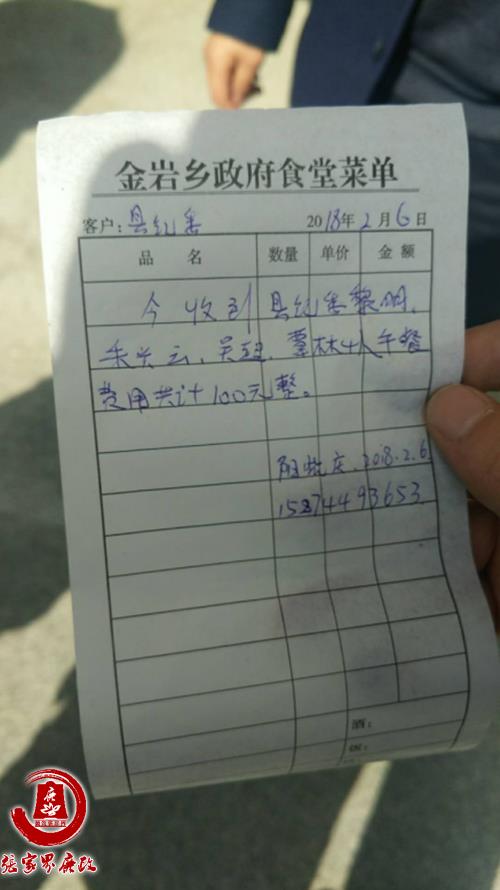 金岩乡政府食堂菜单
客户: 县纪委 2018年2月6日
品名 数量 单价 金额
今收到县纪委黎明、
朱兴云、吴 、覃林4人午餐
费用共计100元整。
2018.2.6
15874493653
酒:
饭:
张家界廉政